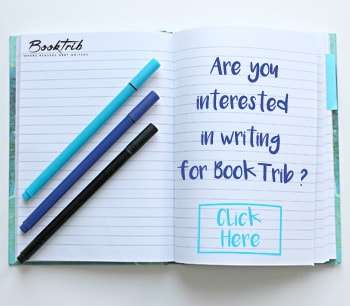 BookTrib
WHERE READERS MEET WRITERS
Are you
interested
in writing
for BookTrib?
Click
Here